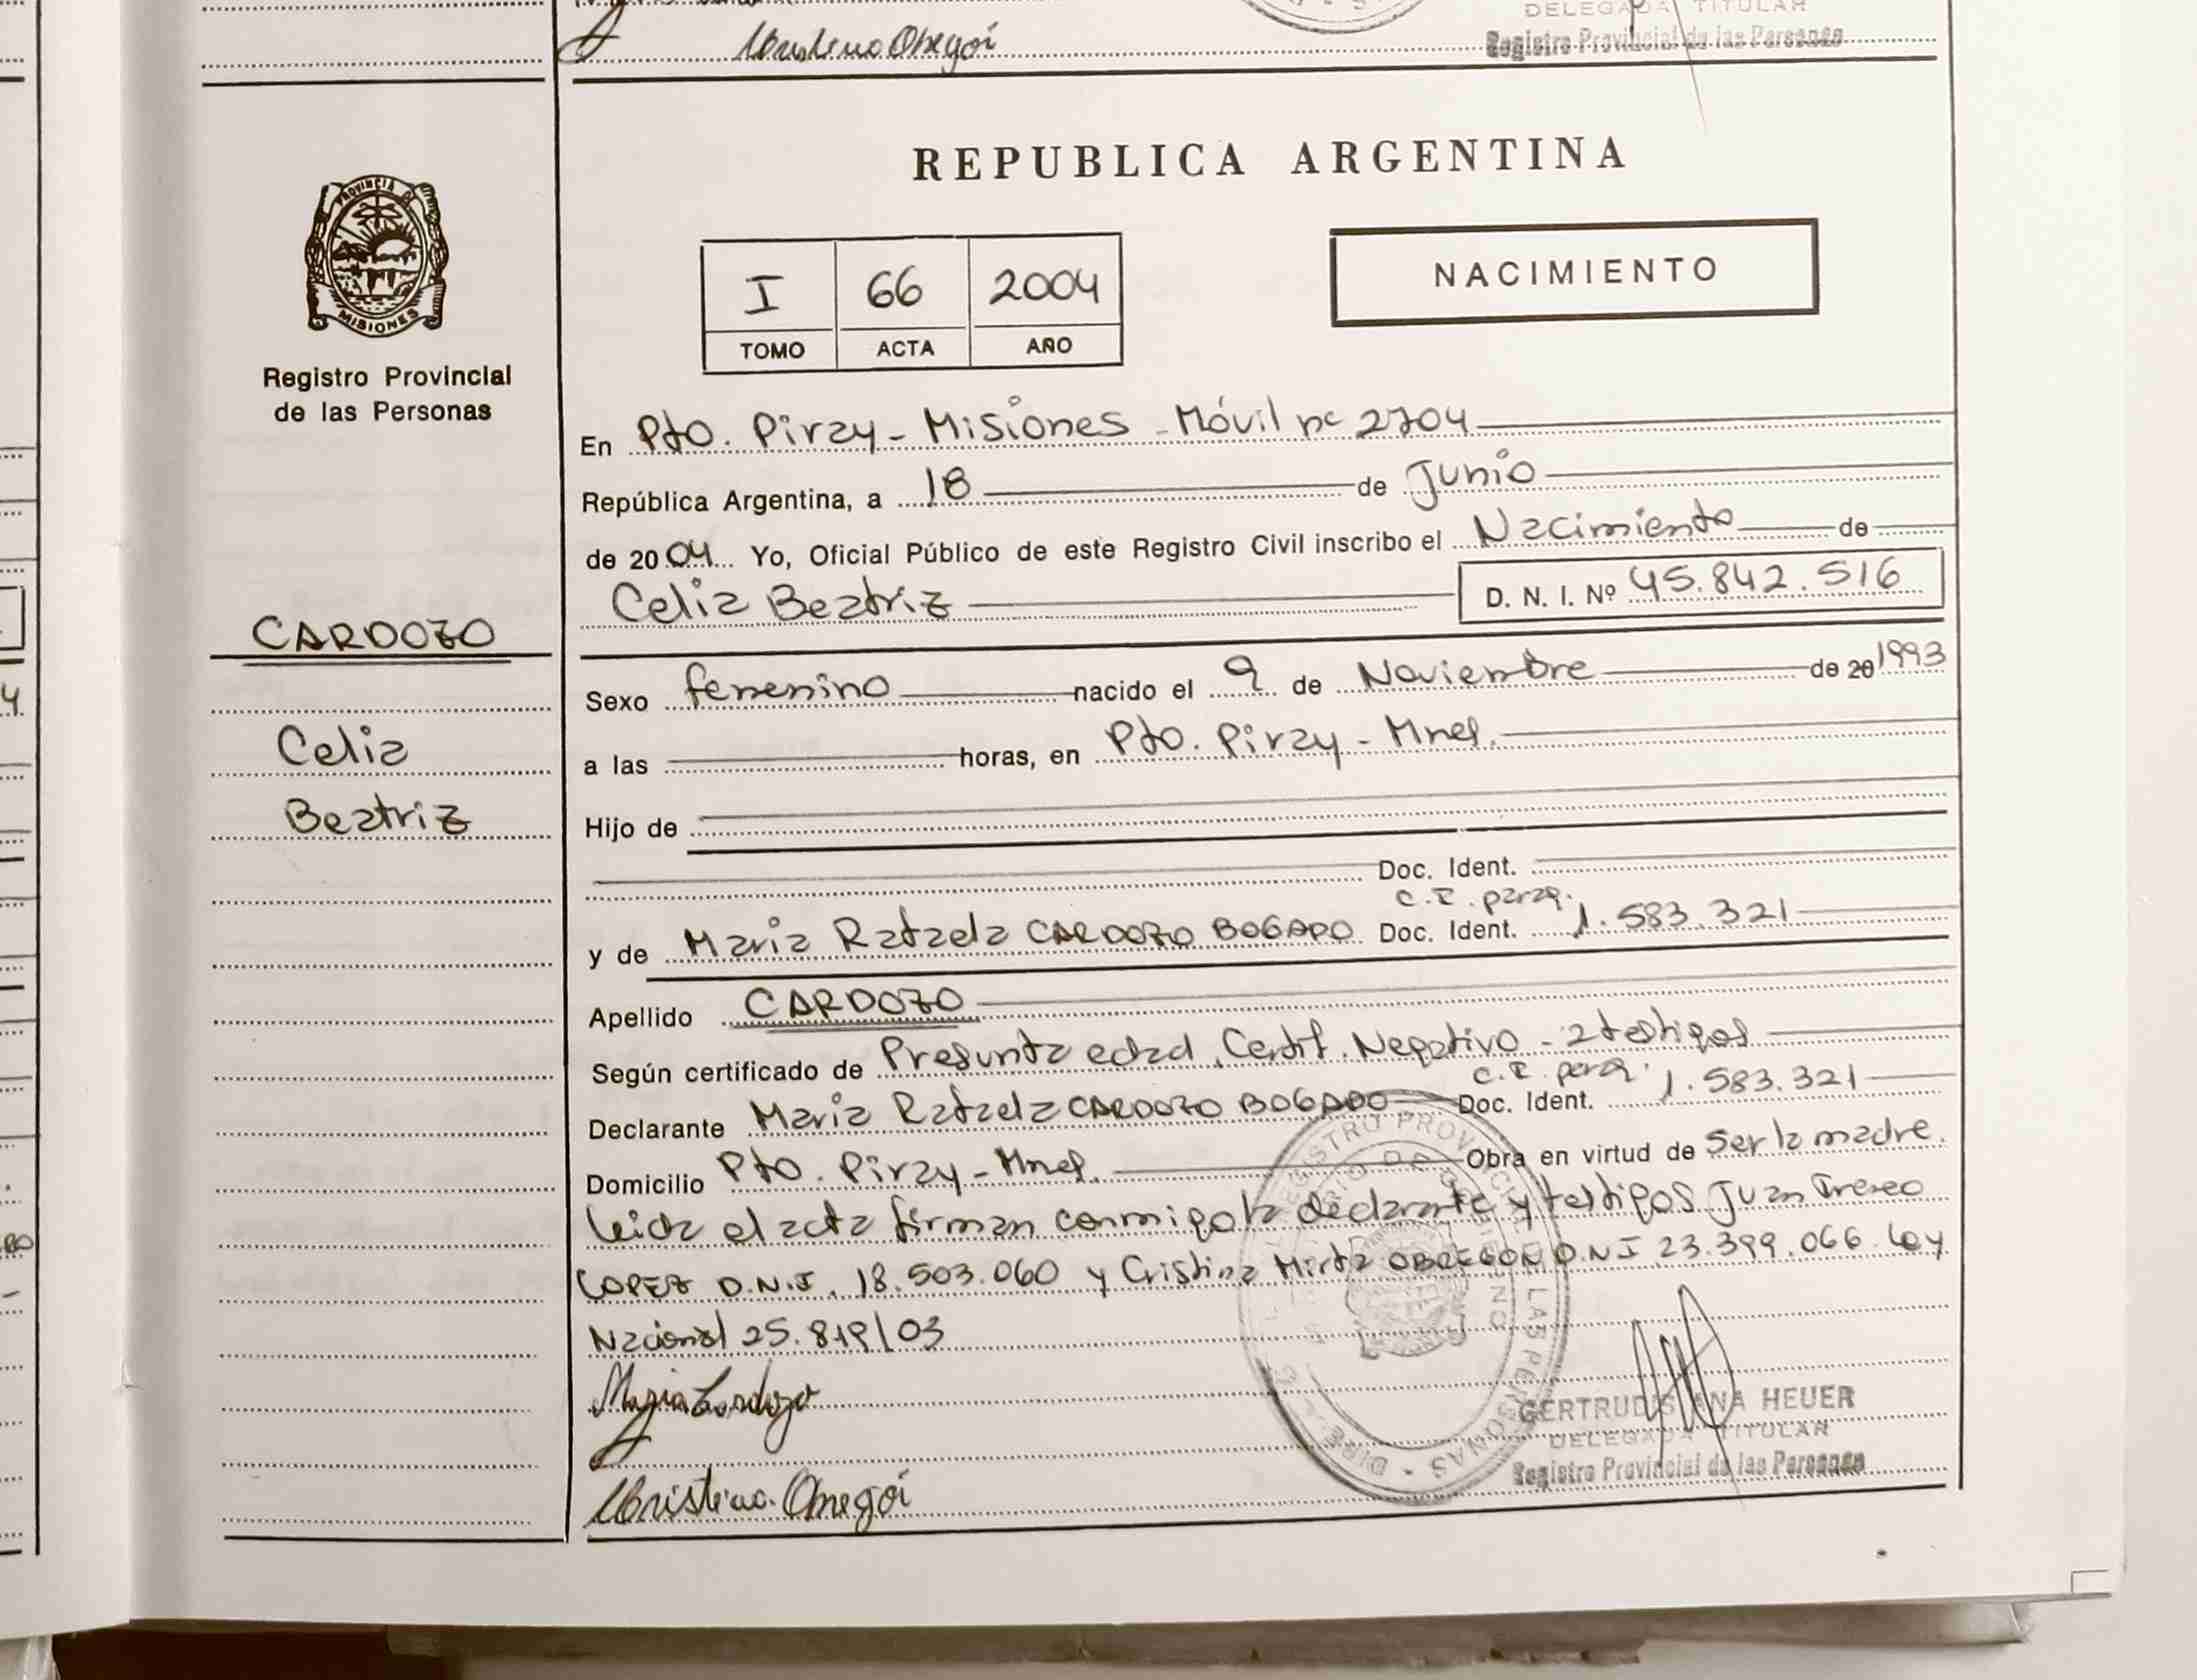 DELEGADA TITULAR
Registro Provincial de las Personas
REPUBLICA ARGENTINA
PROVINCIA DE
MISIONES
Registro Provincial
de las Personas
I 66 2004
TOMO ACTA AÑO
NACIMIENTO
En Pto. Piray - Misiones - Móvil nº 2704
República Argentina, a 18 de Junio
de 2004 Yo, Oficial Público de este Registro Civil inscribo el Nacimiento de
Celia Beatriz D. N. I. Nº 45.842.516
CARDOZO
Celia
Beatriz
Sexo femenino nacido el 9 de Noviembre de 20 1993
a las horas, en Pto. Piray - Mnes.
Hijo de
Doc. Ident.
C.I. parag.
y de Maria Rafaela CARDOZO BOGADO Doc. Ident. 1.583.321
Apellido CARDOZO
Según certificado de Presunta edad, Certif. Negativo - 2 testigos
C.I. parag.
Declarante Maria Rafaela CARDOZO BOGADO Doc. Ident. 1.583.321
Domicilio Pto. Piray - Mnes. Obra en virtud de Ser la madre.
Leida el acta firman conmigo la declarante y testigos Juan Ireneo
LOPEZ D.N.I. 18.503.060 y Cristina Mirta OBREGON D.N.I. 23.399.066 Ley
Nacional 25.819/03
Maria Cardozo
GERTRUDIS ANA HEUER
DELEGADA TITULAR
Registro Provincial de las Personas
REGISTRO PROVINCIAL DE LAS PERSONAS